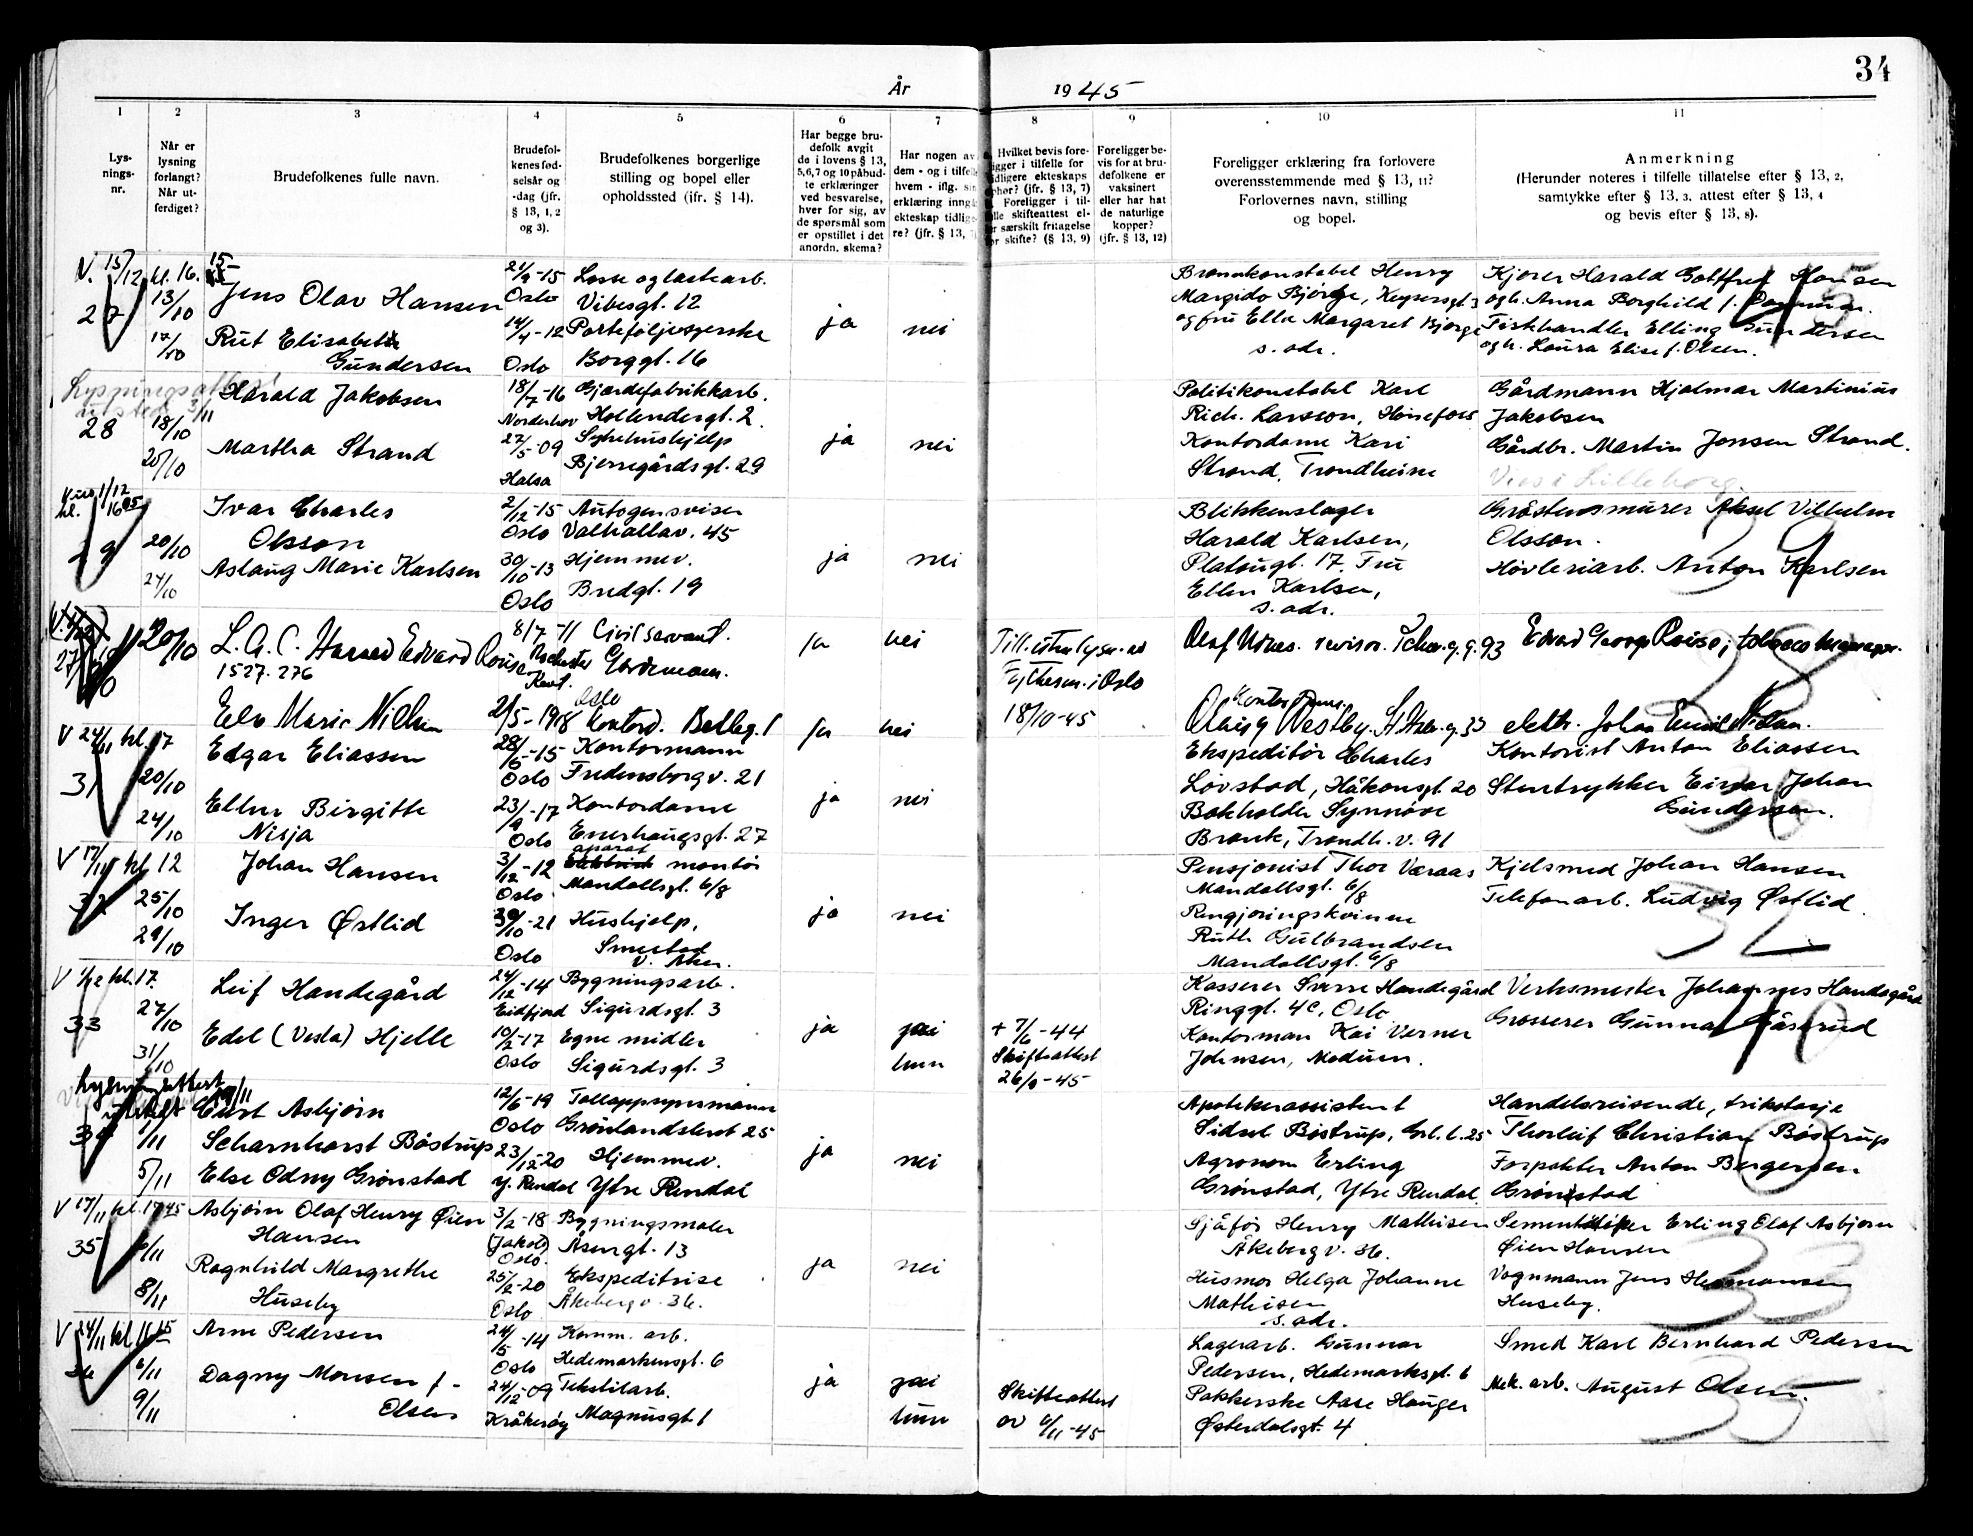 34
År 1945
1
2
3
4
5
6
7
8
9
10
11
Lys-
nings-
nr.
Når er
lysning
forlangt?
Når ut-
ferdiget?
Brudefolkenes fulle navn.
Brudefol-
kenes fød-
selsår og
-dag (jfr.
§ 13, 1, 2
og 3).
Brudefolkenes borgerlige
stilling og bopel eller
opholdssted (ifr. § 14).
Har begge bru-
defolk avgit
de i lovens § 13,
5,6,7 og 10 påbud-
te erklæringer
ved besvarelse,
hver for sig, av
de spørsmål som
er opstillet i det
anordn. skema?
Har nogen av
dem - og i tilfelle
hvem - iflg.
erklæring inngå
ekteskap tidlige
re? (jfr. § 13,
Hvilket bevis fore-
ligger i tilfelle for
tidligere ekteskaps
ophør? (jfr. § 13, 7)
Foreligger i til-
felle skifteattest el-
er særskilt fritagelse
for skifte? (§ 13, 9)
Foreligger be-
vis for at bru-
defolkene er
vaksinert
eller har hat
de naturlige
kopper?
(jfr. § 13, 12)
Foreligger erklæring fra forlovere
overensstemmende med § 13, 11?
Forlovernes navn, stilling
og bopel.
Anmerkning
(Herunder noteres i tilfelle tillatelse efter § 13, 2,
samtykke efter § 13, 3. attest efter § 13, 4
og bevis efter § 13, 8).
V. 15/12 kl. 16. 15
27
13/10
17/10
Jens Olav Hansen
21/9-15
Oslo
Losse og lastearb.
Vibesgt. 12
Rut Elisabeth
Gundersen
14/4-12
Oslo
Porteføljesyerske
Borggt. 16
ja
nei
Brannkonstabel Henry
Margido Bjørge, Keysersgt. 3
og fru Ella Margaret Bjørge
s. adr.
Kjører Harald Gottfred Hansen
og h. Anna Borghild f.
Fiskhandler Elling Gundersen
og h. Laura Elise f. Olsen.
15
Lysningsattest
utstedt 3/11
28
18/10
20/10
Harald Jakobsen
18/7-16
Norderhov
Gjærdefabrikkarb.
Hollendergt. 2
Martha Strand
27/5-09
Halsa
Sykehushjelp
Bjerregårdsgt. 29
ja
nei
Politikonstabel Karl
Rich. Larsson, Hønefoss
Kontordame Kari
Strand, Trondheim
Gårdmann Hjalmar Martinius
Jakobsen
Gårdbr. Martin Jonsen Strand.
Vies i Lilleborg.
1/12
kl. 16 05
29
20/10
24/10
Ivar Charles
Olsson
2/12-15
Oslo
Autogensveiser
Valhallav. 45
Aslaug Marie Karlsen
30/10-13
Oslo
Hjemmev.
Bredgt. 19
ja
nei
Blikkenslager
Harald Karlsen,
Platougt. 17. Fru
Ellen Karlsen,
s. adr.
Gråstensmurer Aksel Vilhelm
Olsson.
Høvleriarb. Anton Karlsen
39
20/10
L. A. C. Edvard Rouse
1527. 276
8/7-11
Rochester
Kent.
Civil servant.
Gardemoen.
ja
nei
i Oslo
18/10-45
Olaf Udnes. revisor.
Edvard Georg Rouse, tobacco manager.
38
Marie Nielsen
2/5-1918
Oslo
kontord.
ja
nei
Vestby.
Johan Emil
V 24/11 kl. 17
31
20/10
24/10
Edgar Eliassen
28/5-15
Oslo
Kontormann
Fredensborgv. 21
Ellen Birgitte
Nisja
23/9-17
Oslo
Kontordame
Enerhaugsgt. 27
ja
nei
Ekspeditør Charles
Løvstad, Håkonsgt. 20
Bokholder Synnøve
Brønk, Trondh. v. 91
Kontorist Anton Eliassen
Stentrykker Einar Johan
Gundersen.
36
V 17/11 kl. 12
32
25/10
29/10
Johan Hansen
3/12-12
Oslo.
aparat
montør
Mandallsgt. 6/8
Inger Østlid
30/10-21
Oslo
Hushjelp,
Smestad
v. Aker.
ja
nei
Pensjonist Thor Væraas
Mandallsgt. 6/8
Rengjøringskvinne
Ruth Gulbrandsen
Mandallsgt. 6/8
Kjelsmed Johan Hansen
Telefonarb. Ludvig Østlid.
32
V 1/12 kl. 17.
33
27/10
31/10
Leif Handegård
24/12-14
Eidfjord
Bygningsarb.
Sigurdsgt. 3
Edel (Vesla) Hjelle
10/2-17
Oslo
Egne midler
Sigurdsgt. 3
ja
nei
hun
+ 7/6-44
Skifteattest
26/9-45
Kasserer Sverre Handegård
Ringgt. 4c, Oslo
Kontorman Kai Verner
Johnsen, Modum.
Verksmester Johannes Handegård
Grosserer Gunnar Gåserud
40
Lysningsattest
utstedt 19/11
34
/11
5/11
Curt Asbjørn
Scharnhorst Bøstrup
12/6-19
Oslo
Tolloppsynsmann
Grønlandsleret 25
Else Odny Grønstad
23/12-20
Y. Rendal
Hjemmev.
Ytre Rendal
ja
nei
Apotekerassistent
Sidsel Bøstrup, Grl. l. 25
Agronom Erling
Grønstad, Ytre Rendal.
Handelsreisende, trikotasje
Thorleif Christian Bøstrup
Forpakter Anton Bergersen
Grønstad
0
V 17/11 kl. 17 45
35
6/11
8/11
Asbjørn Olaf Henry Øien
Hansen
3/2-18
(Jakob)
Oslo.
Bygningsmaler
Åsengt. 13
Ragnhild Margrethe
Huseby
25/2-20
Oslo
Ekspeditrise
Åkebergv. 36.
ja
nei
Sjåfør Henry Mathisen
Åkebergv. 36.
Husmor Helga Johanne
Mathisen
s. adr.
Sementstøper Erling Olaf Asbjørn
Øien Hansen
Vognmann Jens Hermansen
Huseby.
33
V 24/11 kl. 16 15
36
6/11
9/11
Arne Pedersen
24/5-14
Oslo
Komm. arb.
Hedemarkensgt. 6
Dagny Monsen f.
Olsen
24/12-09
Kråkerøy
Tekstilarb.
Magnusgt. 1
ja
nei
hun
Skifteattest
av 6/11-45
Lagerarb. Gunnar
Pedersen, Hedemarksgt. 6
Pakkerske Aase Hauger
Østerdalsgt. 4
Smed Karl Bernhard Pedersen
Mek. arb. August Olsen.
35